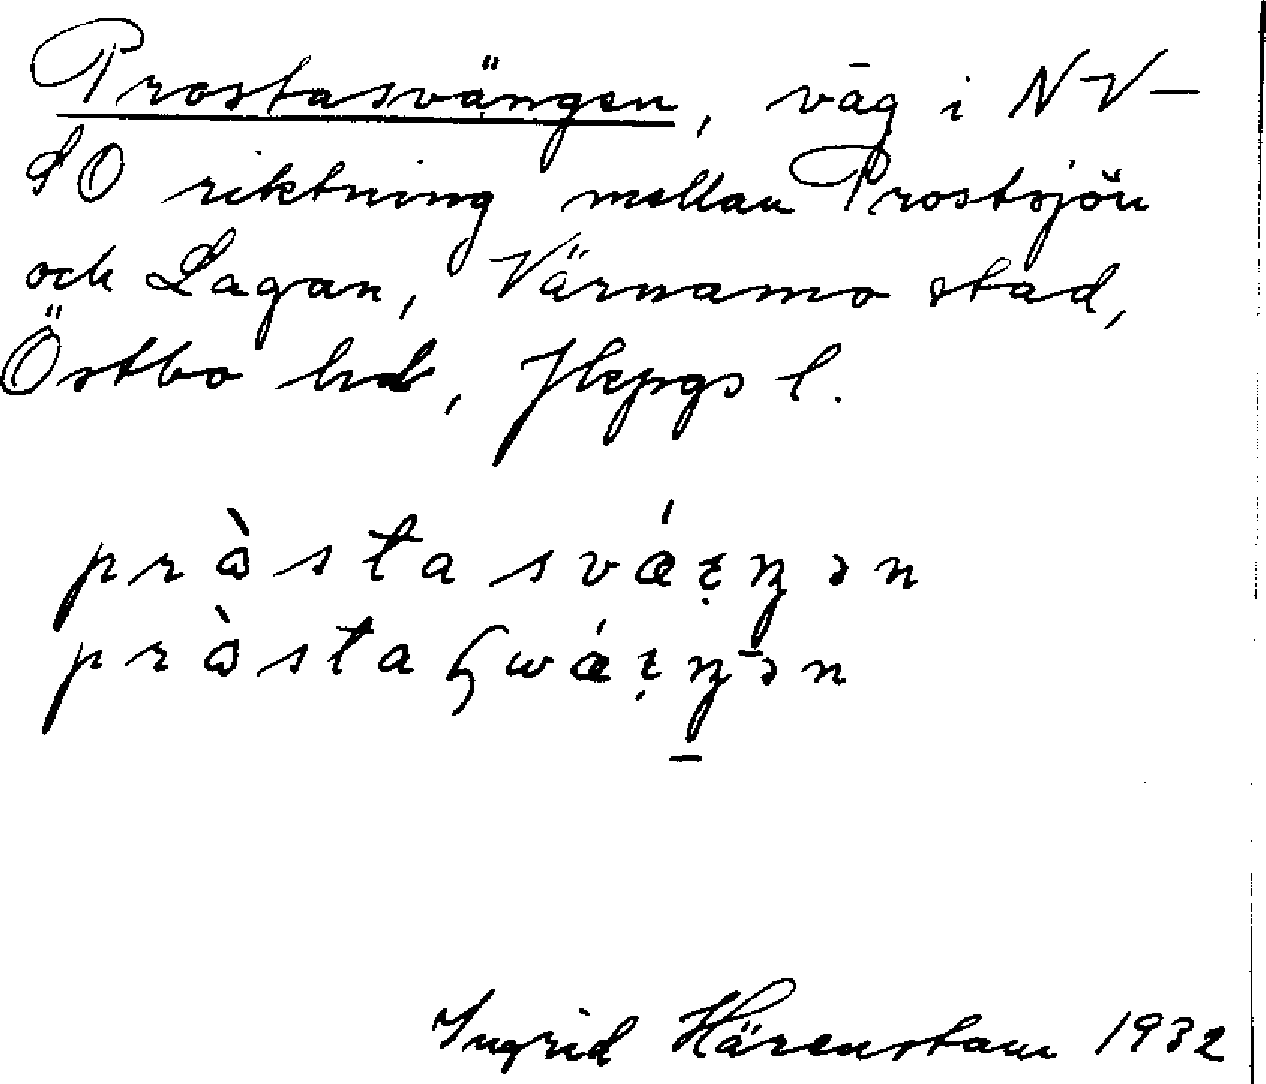 Prostasvängen, väg i NV–
SO riktning mellan Prostsjön
och Lagan, Värnamo stad,
Östbo hd, Jkpgs l.
pràsta
pràsta
Ingrid Härenstam 1932